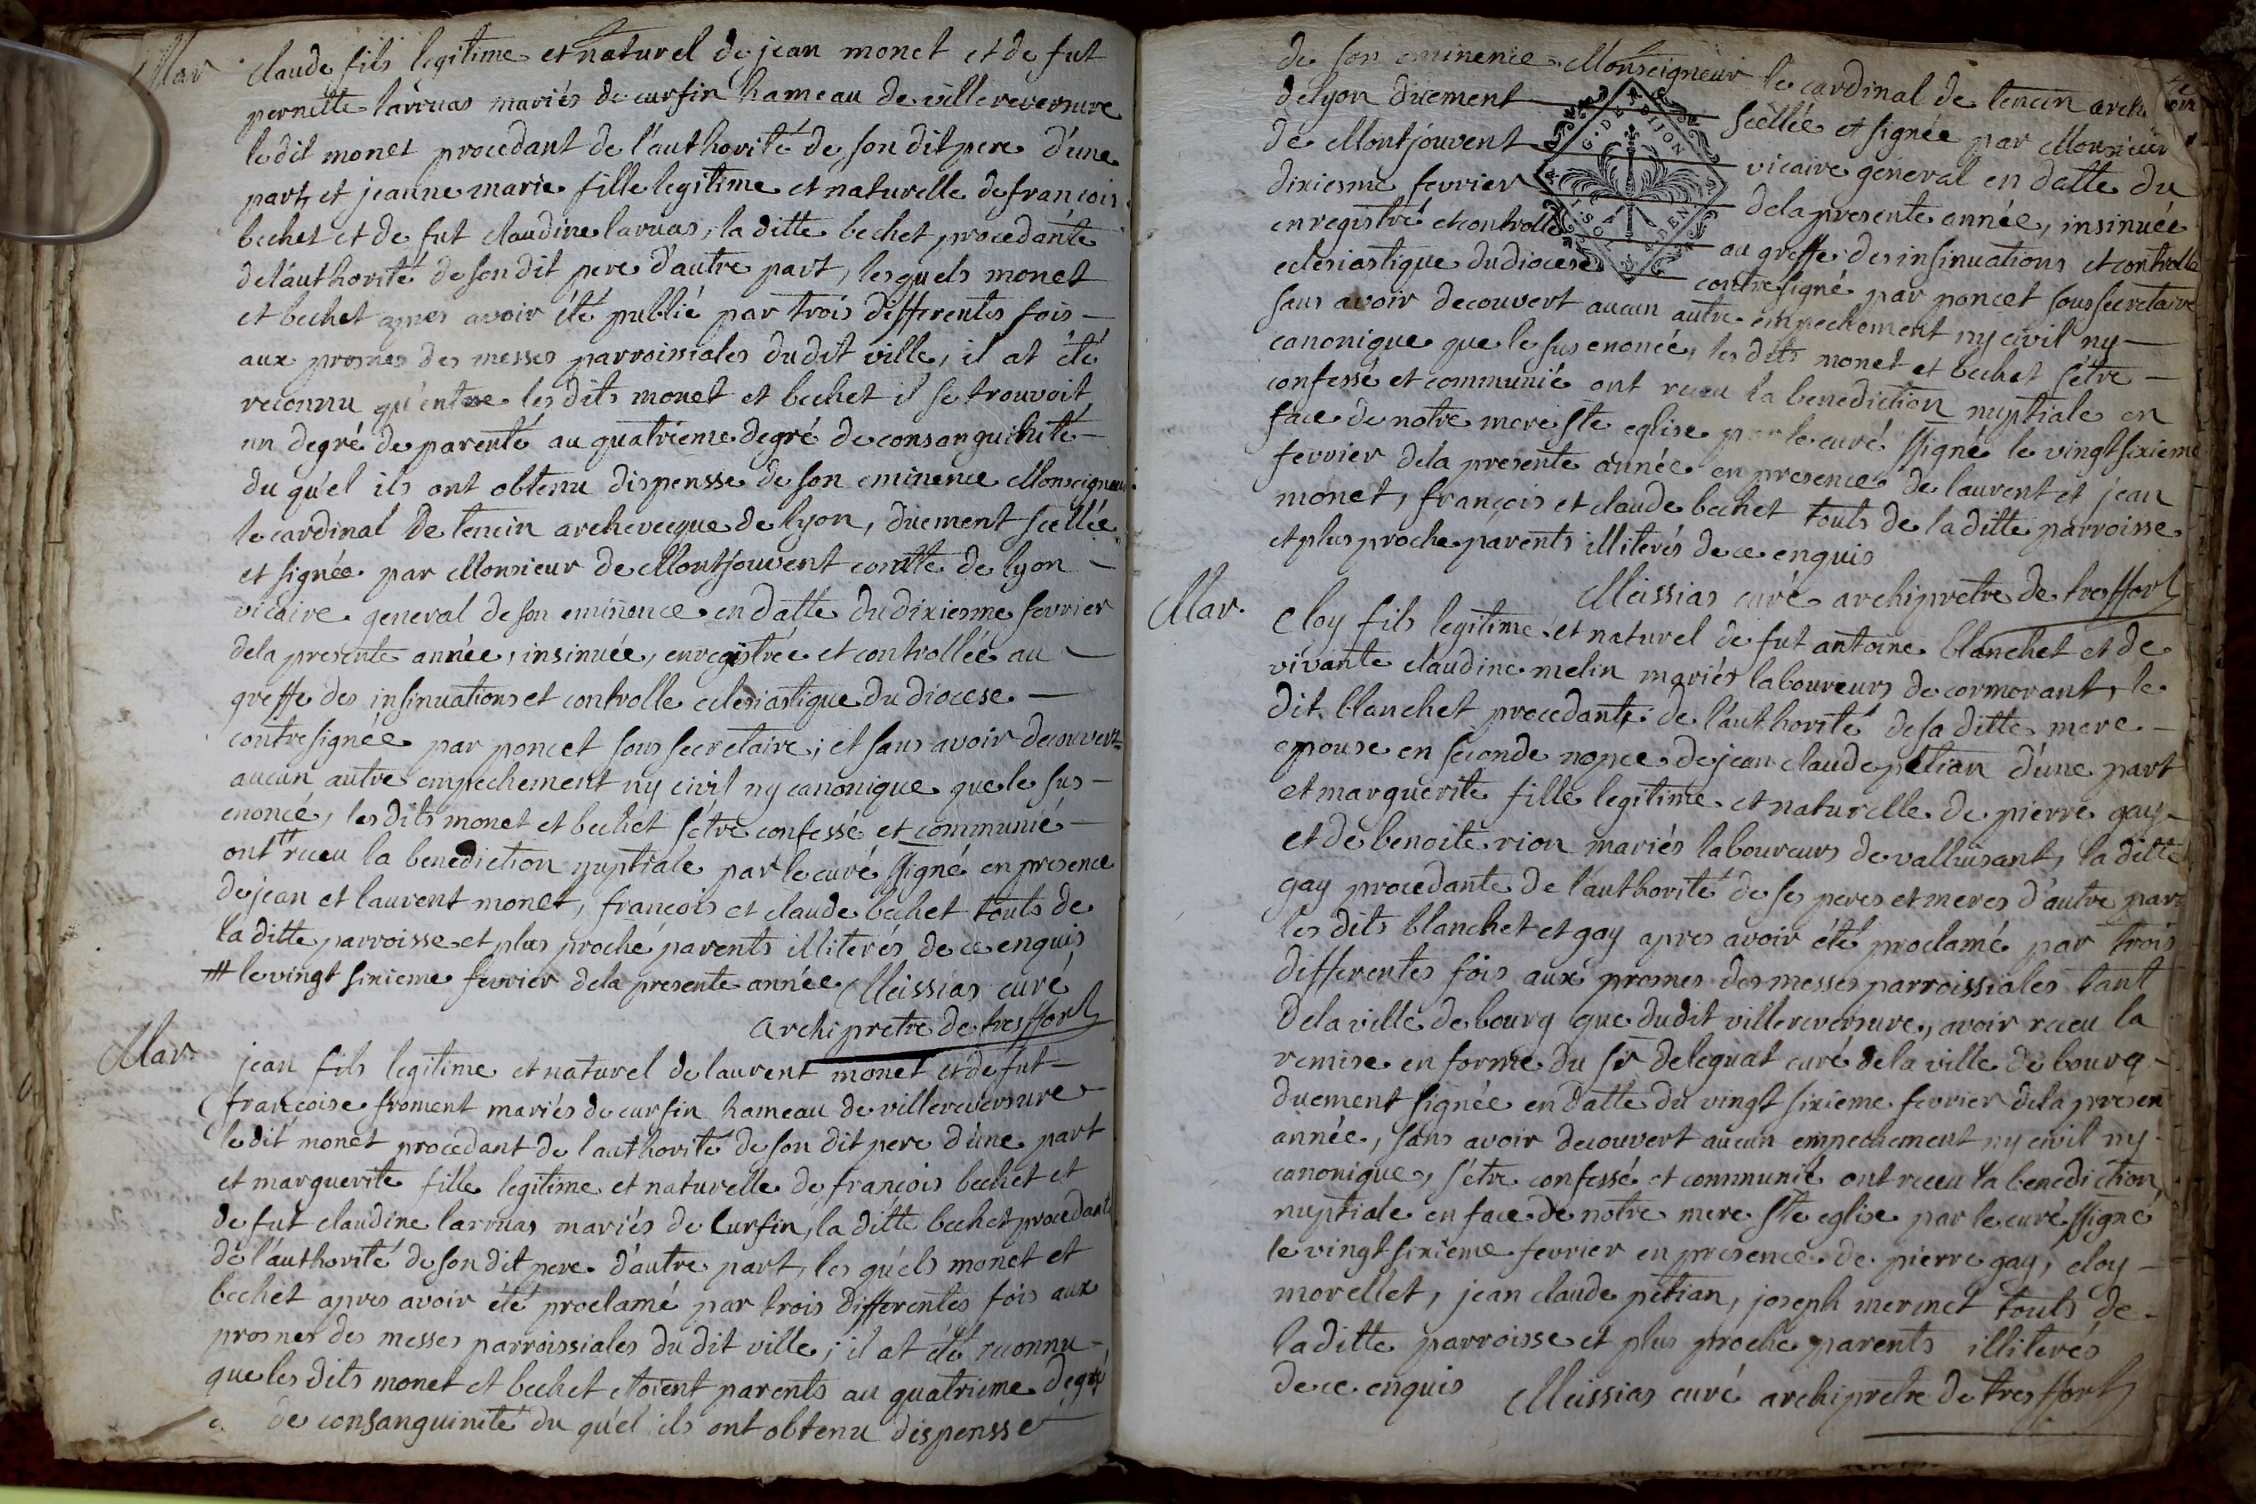 Mar claude fils legitime et naturel de jean monet et de fut
pernette larruas mariés de curfin hameau de villereversure
le dit monet procedant de l'authorité de son dit pere d'une
part, et jeanne marie fille legitime et naturelle de françois
bechet et de fut claudine larruas, la ditte bechet procedante
de l'authorité de son dit pere d'autre part, lesquels monet
et bechet apres avoir été publié par trois differentes fois —
aux prosnes des messes parroissiales du dit ville, il at été
reconnu qu'entre les dits monet et bechet il se trouvoit
un degré de parenté au quatrieme degré de consanguinité —
du qu'el ils ont obtenu dispensse de son eminence Monseigneur
le cardinal de tencin archevecque de lyon, duement scellée
et signée par Monsieur de Montjouvent comte de lyon —
vicaire general de son eminence en datte du dixiesme fevrier
de la presente année, insinuée, enregistrée et controllée au —
greffe des insinuations et controlle eclesiastique du diocese —
contresignée par poncet sous secretaire ; et sans avoir decouvert
aucun autre empechement ny civil ny canonique que le sus —
enoncé, les dits monet et bechet s'étre confessé et communié —
ont # receu la benediction nuptiale par le curé ssigné en presence
de jean et laurent monet, françois et claude bechet touts de
la ditte parroisse et plus proche parents illiterés de ce enquis
# le vingt sixieme fevrier de la presente année Meissias curé
archipretre de tresffort
Mar. jean fils legitime et naturel de laurent monet et de fut —
françoise froment mariés de curfin hameau de villereversure
le dit monet procedant de l'authorité de son dit pere d'une part
et marguerite fille legitime et naturelle de françois bechet et
de fut claudine larruas mariés de Curfin, la ditte bechet procedante
de l'authorité de son dit pere d'autre part, les qu'els monet et
bechet apres avoir été proclamé par trois differentes fois aux
prosnes des messes parroissiales du dit ville ; il at été reconnu —
que les dits monet et bechet etoient parents au quatrieme degré
de consanguinité du qu'el ils ont obtenu dispensse
de son eminence Monseigneur le cardinal de tencin arch
de lyon duement — scellée et signée par Monsieur
de Montjouvent — vicaire general en datte du
dixiesme fevrier — de la presente année, insinuée
enregistré et controllé — au greffe des insinuations et controlle
eclesiastique du diocese — contresigné par poncet sous secretaire
G. DE DIJON
sans avoir decouvert aucun autre empechement ny civil ny —
canonique que le sus enoncé, les dits monet et bechet s'étre —
confessé et communié ont receu la benediction nuptiale en
face de notre mere ste eglise par le curé ssigné le vingt sixieme
fevrier de la presente année en presence de laurent et jean
monet, françois et claude bechet touts de la ditte parroisse
et plus proche parents illiterés de ce enquis
Meissias curé archipretre de tresffort
Mar. Eloy fils legitime et naturel de fut antoine blanchet et de
vivante claudine melin mariés laboureurs de cormorant, le
dit blanchet procedant de l'authorité de sa ditte mere —
epouse en seconde nopce de jean claude petian d'une part
et marguerite fille legitime et naturelle de pierre gay —
et de benoite rion mariés laboureurs de valluisant, la ditte
gay procedante de l'authorité de ses peres et meres d'autre part
les dits blanchet et gay apres avoir été proclamé par trois
differentes fois aux prosnes des messes parroissiales tant
de la ville de bourg que du dit villereversure, avoir receu la
remise en forme du sr deleguat curé de la ville de bourg —
duement signée en datte du vingt sixieme fevrier de la presen
année, sans avoir decouvert aucun empechement ny civil ny —
canonique, s'étre confessé et communié ont receu la benediction
nuptiale en face de notre mere ste eglise par le curé ssigné
le vingt sixieme fevrier en presence de pierre gay, eloy —
morellet, jean claude petian, joseph mermet touts de —
la ditte parroisse et plus proche parents illiterés
de ce enquis Meissias curé archipretre de tresffort